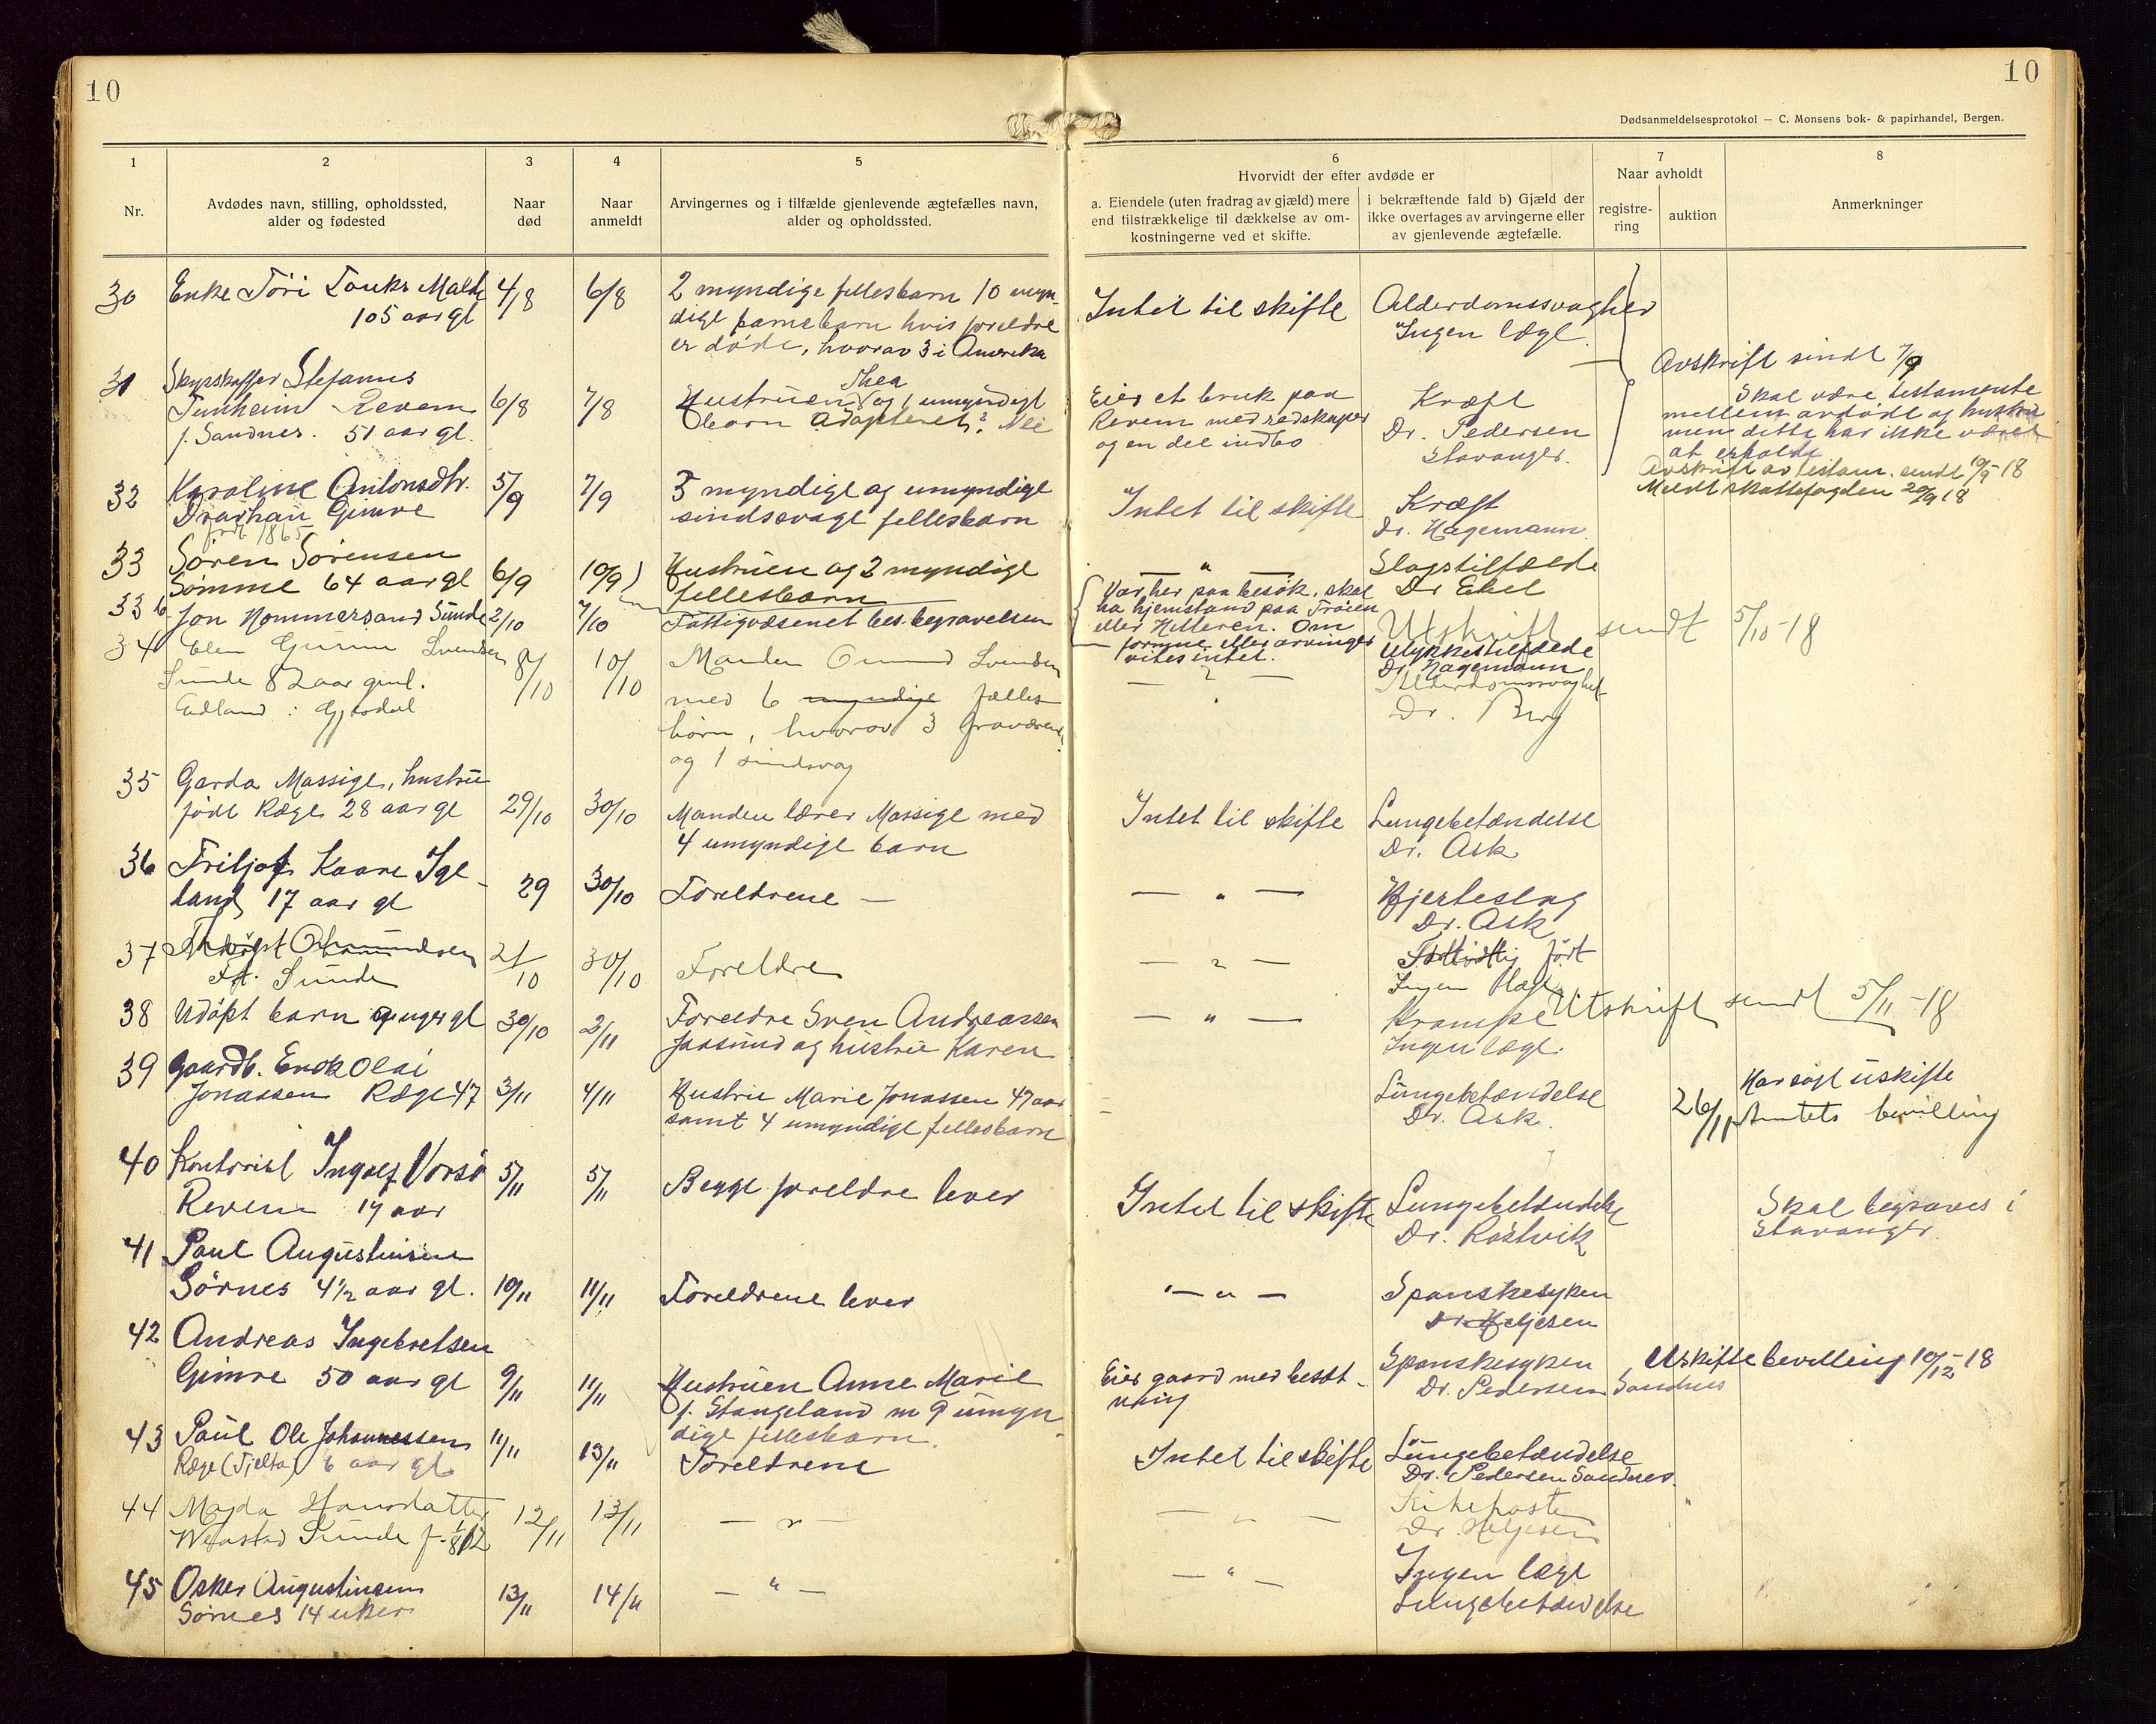 10
10
Dødsanmeldelsesprotokol — C. Monsens bok- & papirhandel, Bergen.
1 2 3 4 5 6 7 8
Nr.
Avdødes navn, stilling, opholdssted,
alder og fødested
Naar
død
Naar
anmeldt
Arvingernes og i tilfælde gjenlevende ægtefælles navn,
alder og opholdssted.
Hvorvidt der efter avdøde er
a. Eiendele (uten fradrag av gjæld) mere
end tilstrækkelige til dækkelse av om-
kostningerne ved et skifte.
i bekræftende fald b) Gjæld der
ikke overtages av arvingerne eller
av gjenlevende ægtefælle.
Naar avholdt
registre-
ring
auktion
Anmerkninger
30 Enke Töri 4/8 6/8 2 myndige fellesbarn 10 myn-
105 aar gl
dige barnebarn hvis foreldre
er døde, hvorav 3 i Amerika
Intet til skifte
Alderdomssvaghet
Ingen læge
Avskrift sendt 7/9
31 Skysskaffer Stefanus
Tunheim Revem 6/8 7/8
f. Sandnes. 51 aar gl.
Thea
Hustruen og 1 umyndigt
barn Adopteret? Nei
Eier et bruk paa
Revem med redskaper
og en del indbo
Kræft
Dr. Pedersen
Stavanger.
Skal være testamente
mellem avdøde og hustru
men dette har ikke været
at erholde
Avskrift av testam. sendt 10/9-18
Meldt skattefogden 20/9 18
32 Karoline Antonsdtr. 5/9 7/9
Gimre
født 1865
5 myndige og umyndige
sindssvage fellesbarn
Intet til skifte
Kræft
Dr. Hagemann
33 Sören Sörensen
Sömme 64 aar gl 6/9 10/9
Hustruen og 2 myndige
fellesbarn
— " —
Slagstilfælde
Dr Ekel
33 b Jon Hommersand Sunde 2/10 7/10 Fattigvæsenet bes. begravelsen
Var her paa besøk, skal
ha hjemstand paa Tröien
eller Hitteren. Om
formue eller arvinger
vites intet.
Ulykkestilfælde
Dr. Hagemann
Utskrift sendt 5/10-18
34 Elen Gurine Svendsen 8/10 10/10
Sunde 82 aar gml.
Edland i Gjesdal
Manden Omund Svendsen
med 6 myndige fælles-
börn, hvorav 3 fraværende
og 1 sindsvag
Alderdomssvaghet
Dr. Berg
35 Garda Massige, hustru
født Ræge 28 aar gl 29/10 30/10
Manden lærer Massige med
4 umyndige barn
Intet til skifte
Lungebetændelse
Dr. Ask
36 Fritjof Kaare Ige-
land, 17 aar gl 29 30/10 Foreldrene —
— " —
Hjerteslag
Dr. Ask
37 21/10 30/10 Foreldre
Sunde
— " —
født
Ingen læge
38 Udöpt barn gl 30/10 2/11
Foreldre Sven Andreassen
Jaasund og hustru Karen
— " —
Krampe
Ingen læge.
Utskrift sendt 5/11-18
39 Gaardb. Enok Olai
Jonassen Ræge 47 3/11 4/11
Hustru Marie Jonassen 47 aar
samt 4 umyndige fellesbarn
Lungebetændelse
Dr. Ask.
26/11
Har søgt uskifte
Amtets bevilling
40 Kontorist Ingolf Vorsö 5/11 5/11
Revem 19 aar
Begge foreldre lever
Intet til skifte
Lungebetændelse
Dr. Rostvik
Skal begraves i
Stavanger.
41 Paul Augustinsen
Sörnes 4½ aar gl. 10/11 11/11 Foreldrene lever
— " —
Spanskesyken
Dr. Heljesen
42 Andreas Ingebretsen
Gimre 50 aar gl 9/11 11/11
Hustruen Anne Marie
f. Stangeland m 9 umyn-
dige fellesbarn.
Eier gaard med besæt-
ning
Spanskesyken
Dr. Pedersen Sandnes
Uskiftebevilling 10/12-18
43 Paul Ole Johannessen 11/11 13/11
Ræge (Tjelta) 6 aar gl
Foreldrene
Intet til skifte
Lungebetændelse
Dr. Pedersen Sandnes.
44 Magda Hansdatter 12/11 13/11
Sunde f. 1/8 12
— " —
— " —
Kikhoste
Dr. Heljesen
45 Osker Augustinsen 13/11 14/11
Sörnes 14 uker
— " —
— " —
Ingen læge
Lungebetændelse